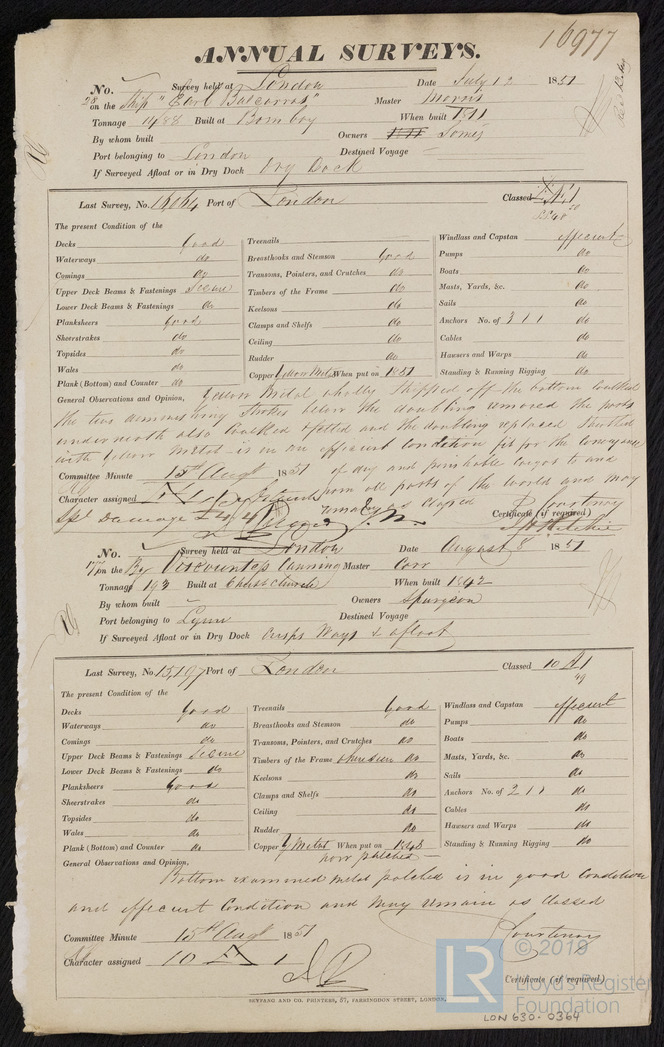 16977
ANNUAL SURVEYS.
No. 28 Survey held at London Date July 12 1851
on the Ship "Earl Balcarras" Master Morris
Tonnage 1488 Built at Bombay When built 1811
By whom built Owners Somes
Port belonging to London Destined Voyage —
If Surveyed Afloat or in Dry Dock Dry Dock
Last Survey, No. Port of London Classed
The present Condition of the
Decks Good Treenails — Windlass and Capstan efficient
Waterways do Breasthooks and Stemson Good Pumps do
Comings do Transoms, Pointers, and Crutches do Boats do
Upper Deck Beams & Fastenings Seeme Timbers of the Frame do Masts, Yards, &c. do
Lower Deck Beams & Fastenings do Keelsons do Sails do
Planksheers Good Clamps and Shelfs do Anchors No. of 3 1 1 do
Sheerstrakes do Ceiling do Cables do
Topsides do Rudder do Hawsers and Warps do
Wales do Copper Yellow Metal When put on 1851 Standing & Running Rigging do
Plank (Bottom) and Counter do
General Observations and Opinion, Yellow Metal wholly stripped off the bottom caulked
the two strakes below the doubling removed the parts
underneath also caulked and the doubling replaced
with Yellow Metal is in an efficient condition fit for the conveyance
of dry and perishable cargos to and
from all parts of the world and may
remain as classed
Committee Minute 15th Augt 1851
Character assigned
P. Courtenay
Certificate (if required)
No. 17 Survey held at London Date August 8 1851
on the Bg Viscountess Canning Master Corr
Tonnage 193 Built at Christchurch When built 1842
By whom built — Owners Spurgeon
Port belonging to Lynn Destined Voyage
If Surveyed Afloat or in Dry Dock Crisps Ways & afloat
Last Survey, No 15,197 Port of London Classed 10 A 1
49
The present Condition of the
Decks Good Treenails Good Windlass and Capstan efficient
Waterways do Breasthooks and Stemson do Pumps do
Comings do Transoms, Pointers, and Crutches do Boats do
Upper Deck Beams & Fastenings Seeme Timbers of the Frame do Masts, Yards, &c. do
Lower Deck Beams & Fastenings do Keelsons do Sails do
Planksheers Good Clamps and Shelfs do Anchors No. of 2 1 1 do
Sheerstrakes do Ceiling do Cables do
Topsides do Rudder do Hawsers and Warps do
Wales do Copper Y Metal When put on 1848 Standing & Running Rigging do
Plank (Bottom) and Counter do now patched —
General Observations and Opinion,
Bottom examined metal patched is in good condition
and efficient Condition and may remain as classed
Committee Minute 15th Augt 1851
Character assigned 10 A 1
Courtenay
Certificate (if required)
BENFANG AND CO. PRINTERS, 57, FARRINGDON STREET, LONDON.
LR © 2019
Lloyd's Register
Foundation
LON 630-0364